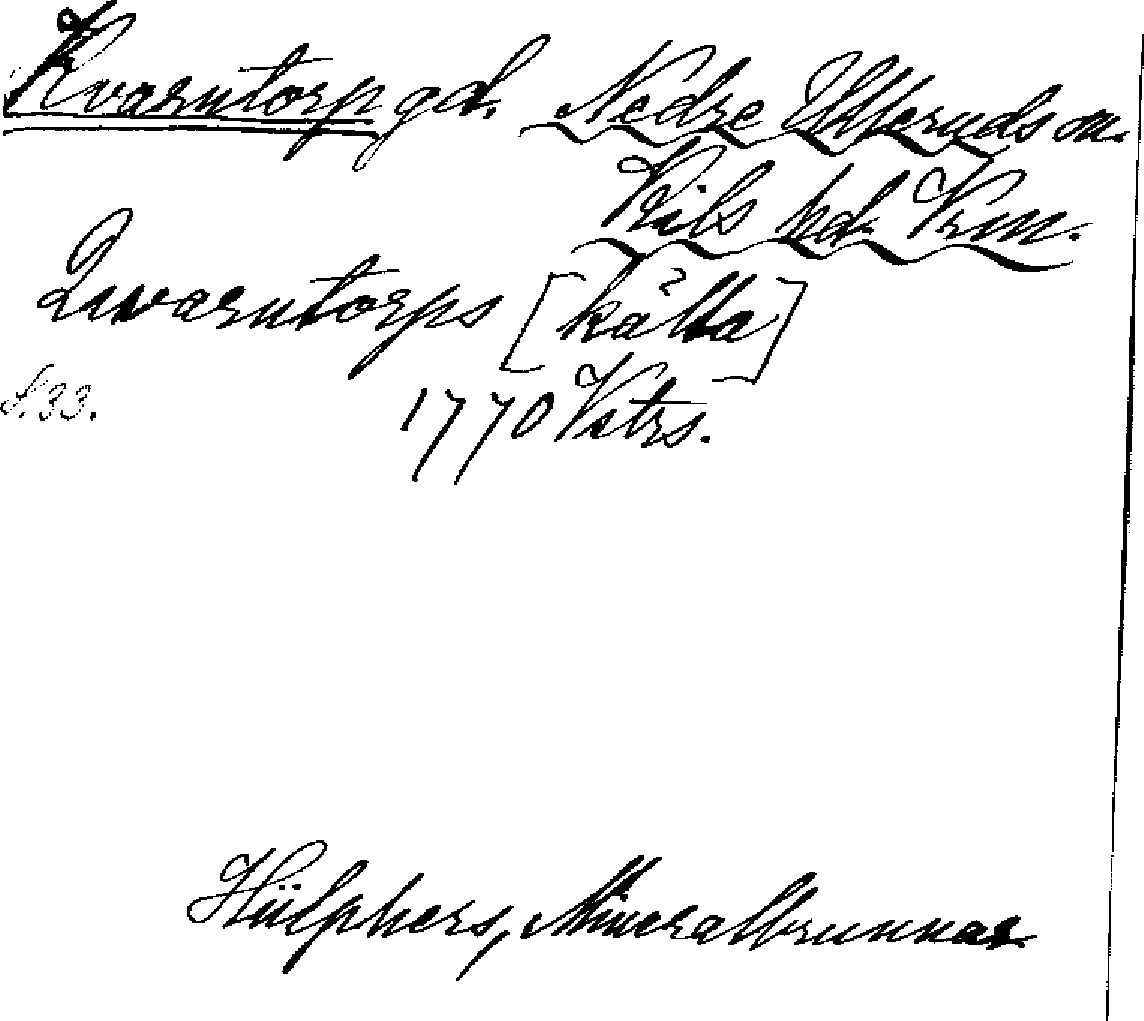 Kvarntorp gd. Nedre Ulleruds sn.
Kils hd. Vrm.
Quvarntorps [källa]
s. 33.
1770 Vstrs.
Hülphers, Mineralbrunnar